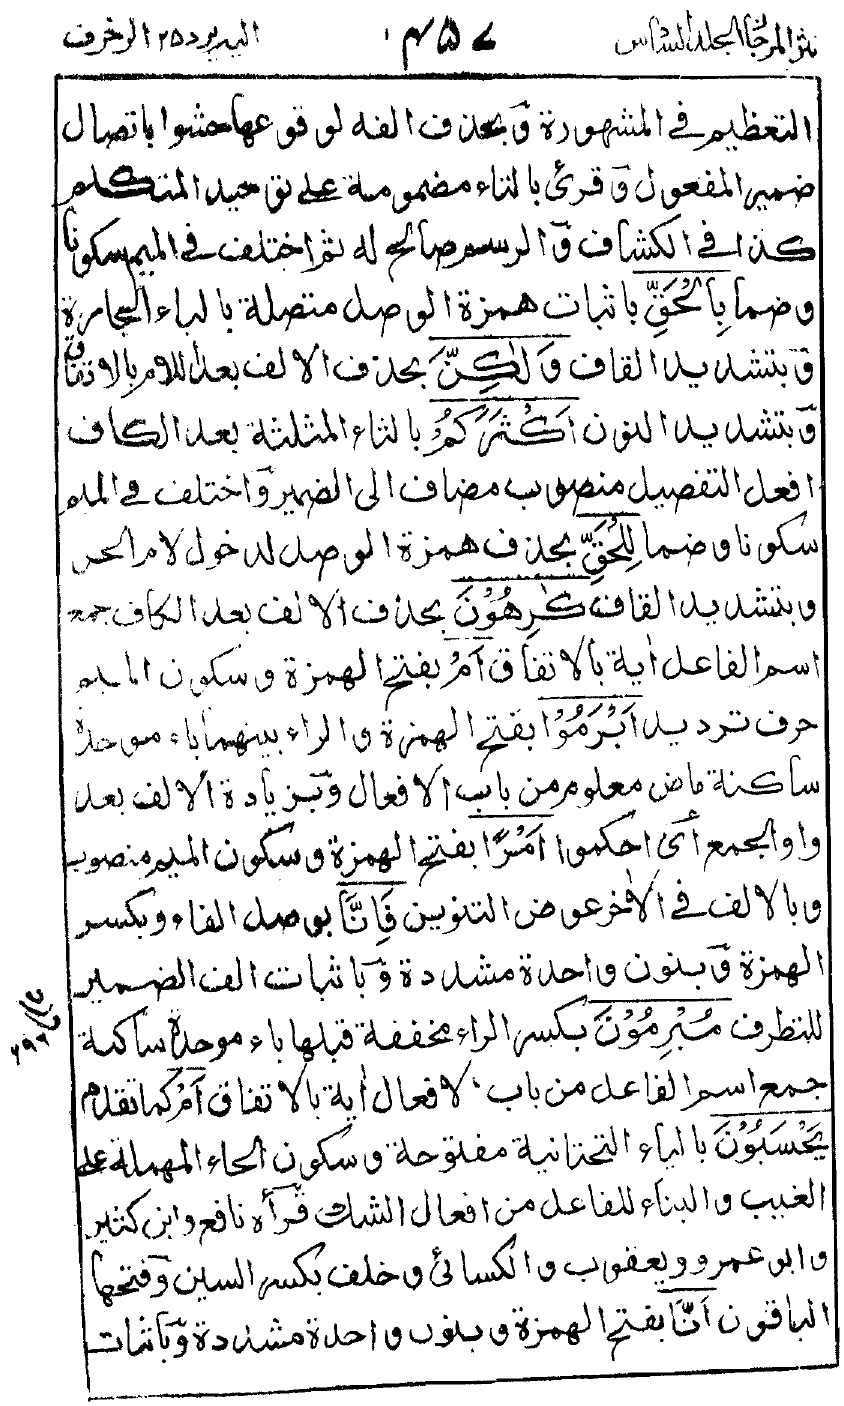 نثر المرجان المجلد السادس ٤٥٧ اليه يرد ٢٥ الزخرف
التعظيم في المشهورة وَبحذف الفه لوقوعها حشوا باتصال
ضمير المفعول وَقرئ بالتاء مضمومة على توحيد المتكلم
كذا في الكشاف وَالرسم صالح له ثم اختلف في الميم سكونا
وضما بِالْحَقِّ باثبات همزة الوصل متصلة بالباء الجارة
وَبتشديد القاف وَلٰكِنَّ بحذف الالف بعد اللام بالاتفاق
وَبتشديد النون اَكْثَرَكُمْ بالثاء المثلثة بعد الكاف
افعل التفصيل منصوب مضاف الى الضمير وَاختلف في الميم
سكونا وضما لِلْحَقِّ بحذف همزة الوصل لدخول لام الجر
وبتشديد القاف كٰرِهُوْنَ بحذف الالف بعد الكاف جمع
اسم الفاعل اٰية بالاتفاق اَمْ بفتح الهمزة وسكون الميم
حرف ترديد اَبْرَمُوْا بفتح الهمزة والراء بينهما باء موحدة
ساكنة ماض معلوم من باب الافعال وَبزيادة الالف بعد
واو الجمع أي احكموا اَمْرًا بفتح الهمزة وسكون الميم منصوب
وبالالف في الاٰخر عوض التنوين فَاِنَّا بوصل الفاء وبكسر
الهمزة وَبنون واحدة مشددة وَباثبات الف الضمير
للتطرف مُبْرِمُوْنَ بكسر الراء مخففة قبلها باء موحدة ساكنة
جمع اسم الفاعل من باب الافعال اٰية بالاتفاق اَمْ كما تقدم
يَحْسَبُوْنَ بالياء التحتانية مفتوحة وسكون الحاء المهملة على
الغيب والبناء للفاعل من افعال الشك قرأه نافع وابن كثير
وابو عمرو ويعقوب والكسائي وخلف بكسر السين وَفتحها
الباقون اَنَّا بفتح الهمزة وبنون واحدة مشددة وَباثبات